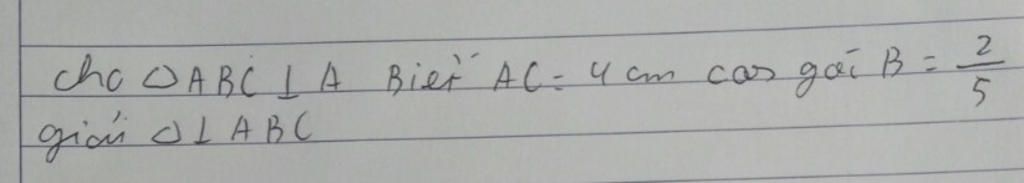 cho △ABC ⊥ A Biết AC = 4 cm cos góc B = 2/5
giải △⊥ ABC